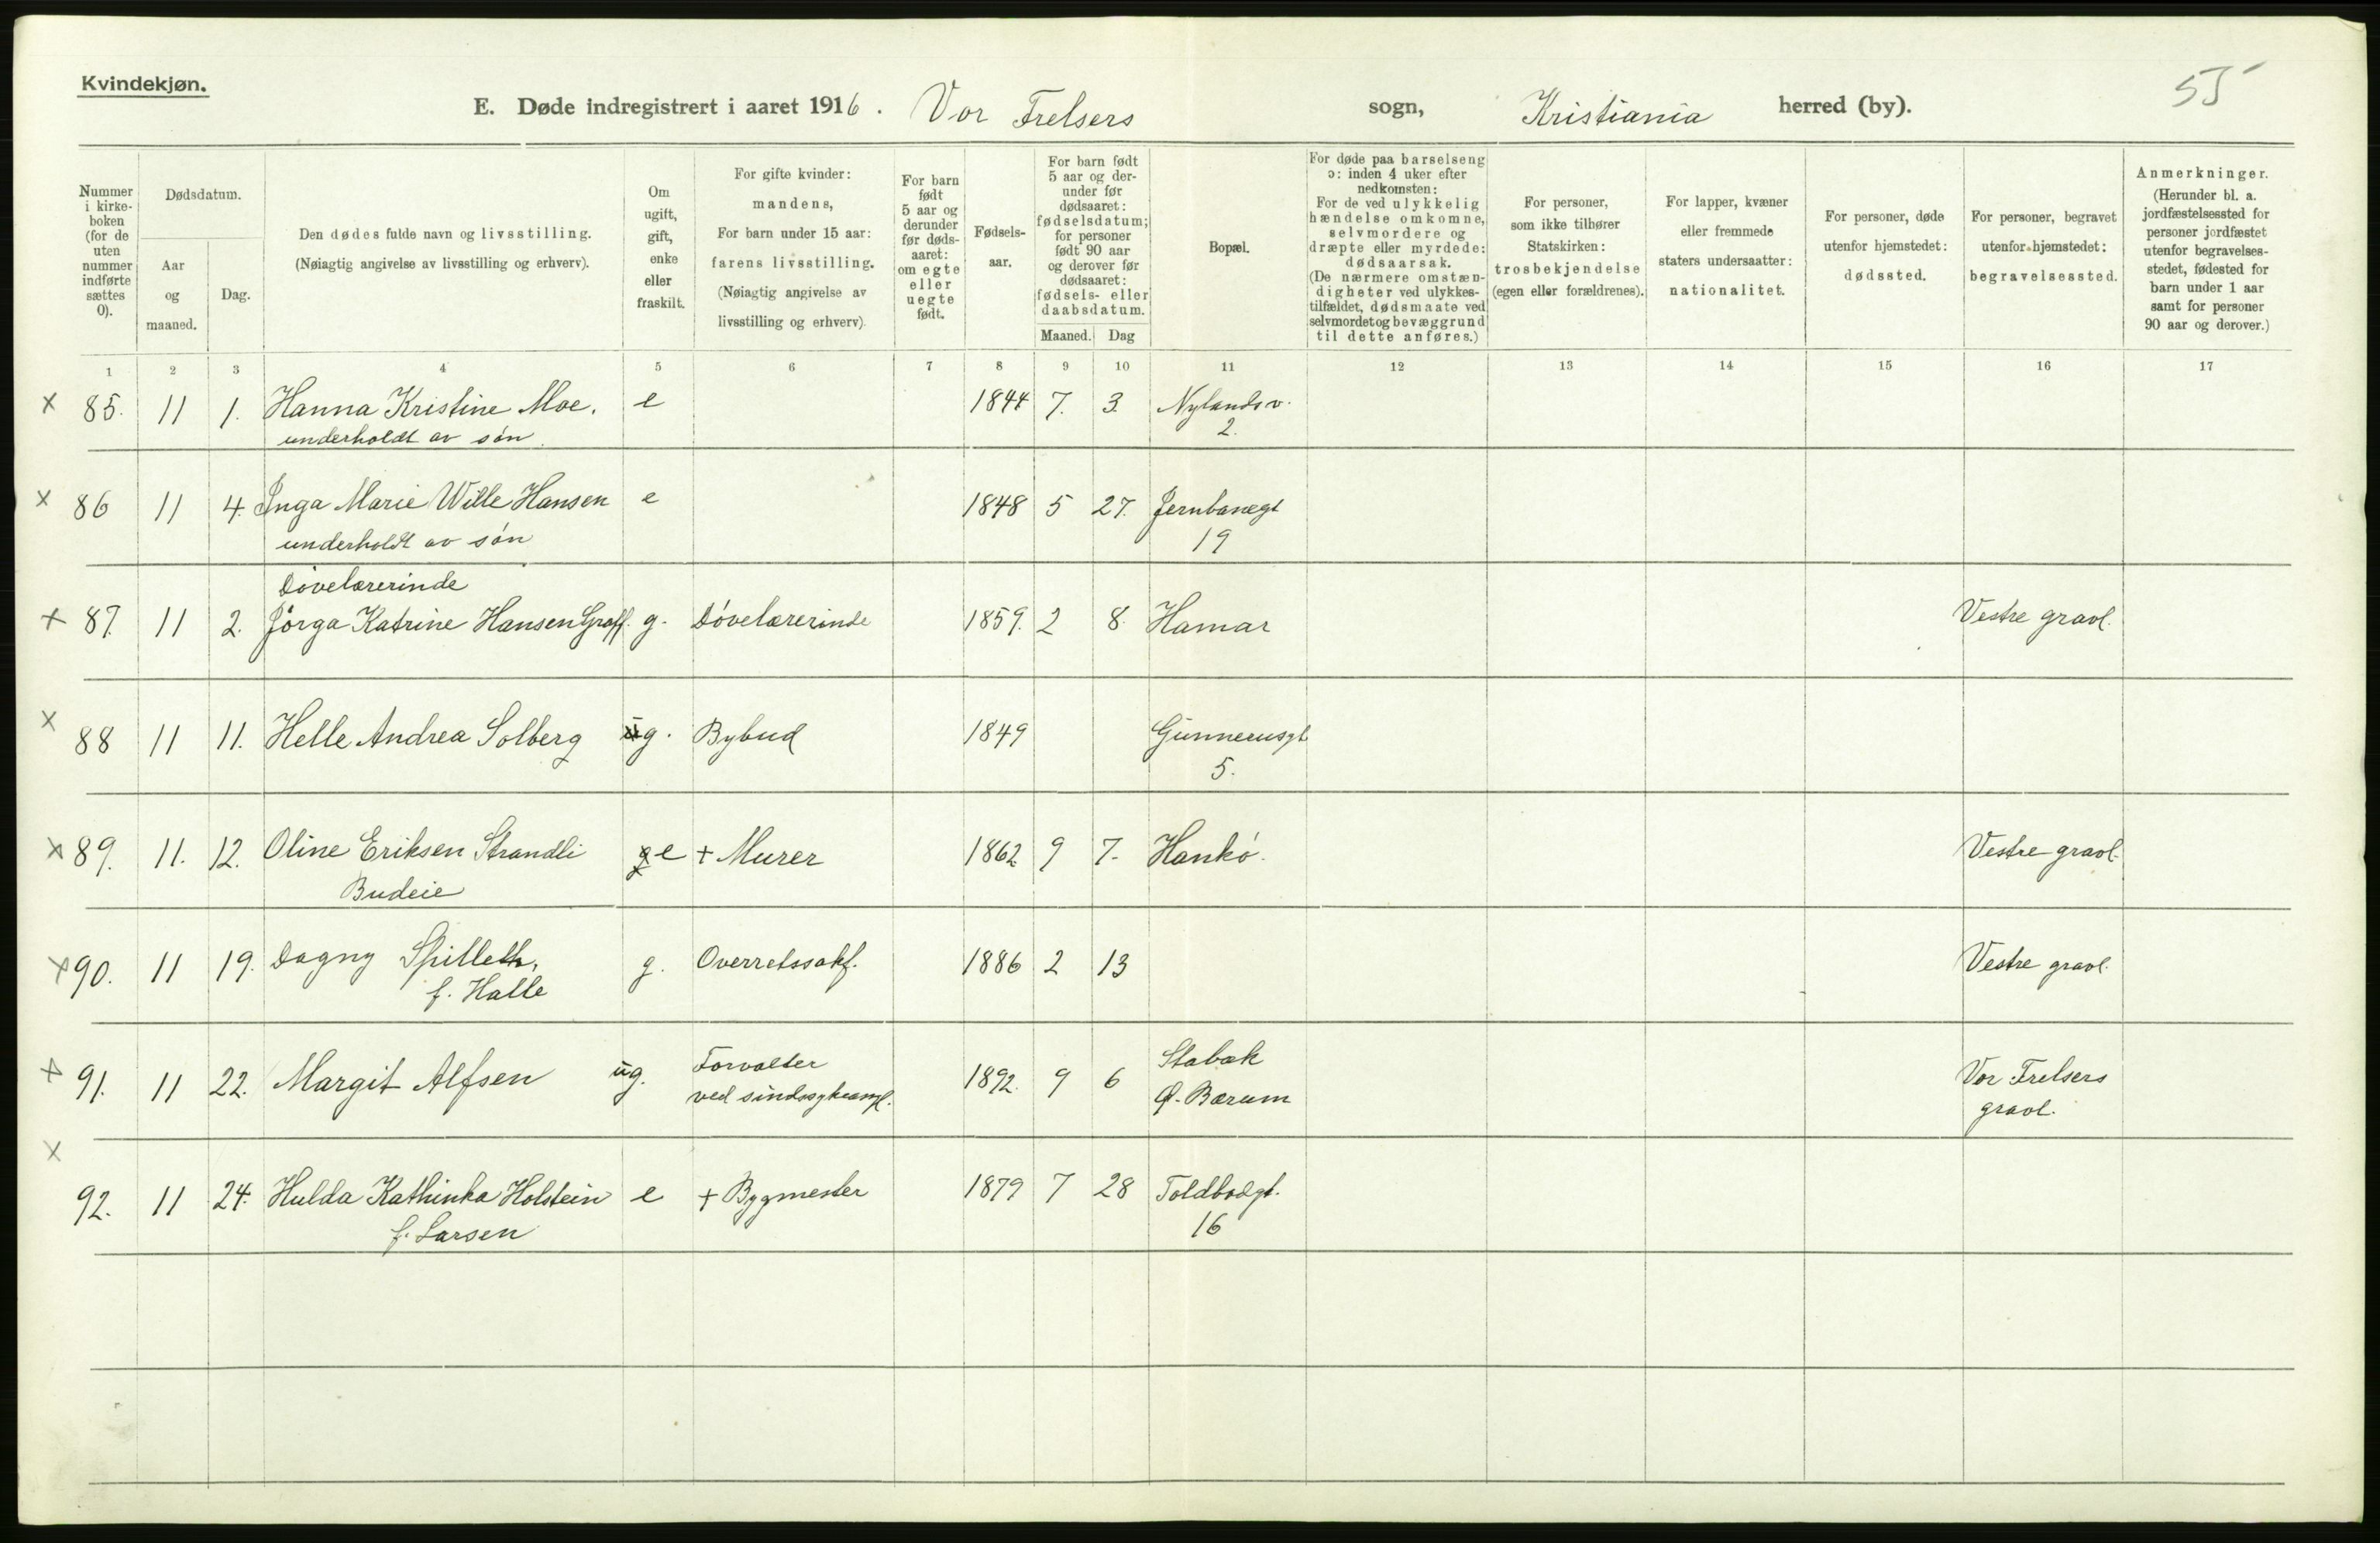 Kvindekjøn.
E. Døde indregistrert i aaret 1916. Vor Frelsers sogn, Kristiania herred (by).
55
Nummer i kirke-boken (for de uten nummer indførte sættes 0).
Dødsdatum.
Aar og maaned.
Dag.
Den dødes fulde navn og livsstilling.
(Nøiagtig angivelse av livsstilling og erhverv).
Om ugift, gift, enke eller fraskilt.
For gifte kvinder: mandens,
For barn under 15 aar: farens livsstilling.
(Nøiagtig angivelse av livsstilling og erhverv).
For barn født 5 aar og derunder før døds-aaret: om egte eller uegte født.
Fødsels-aar.
For barn født 5 aar og der-under før dødsaaret: fødselsdatum; for personer født 90 aar og derover før dødsaaret: fødsels- eller daabsdatum.
Maaned. Dag
Bopæl.
For døde paa barselseng ɔ: inden 4 uker efter nedkomsten:
For de ved ulykkelig hændelse omkomne, selvmordere og dræpte eller myrdede: dødsaarsak.
(De nærmere omstæn-digheter ved ulykkes-tilfældet, dødsmaate ved selvmordet og bevæggrund til dette anføres.)
For personer, som ikke tilhører Statskirken: trosbekjendelse (egen eller forældrenes).
For lapper, kvæner eller fremmede staters undersaatter: nationalitet.
For personer, døde utenfor hjemstedet: dødssted.
For personer, begravet utenfor hjemstedet: begravelsessted.
Anmerkninger.
(Herunder bl. a. jordfæstelsessted for personer jordfæstet utenfor begravelses-stedet, fødested for barn under 1 aar samt for personer 90 aar og derover.)
1 2 3 4 5 6 7 8 9 10 11 12 13 14 15 16 17
x 85. 11 1. Hanna Kristine Moe. e 1844 7. 3. Nylandsv.
underholdt av søn. 2.
x 86 11 4. Inga Marie Wille Hansen e 1848 5 27. Jernbanegt
underholdt av søn 19
Døvelærerinde
x 87. 11 2. Jørga Katrine Hansen Graff. g. Døvelærerinde 1859. 2 8. Hamar Vestre gravl.
x 88 11 11. Helle Andrea Solberg ug. Bybud 1849 Gunnerusgt
5.
x 89. 11. 12. Oline Eriksen Strandli g e + Murer 1862 9 7. Hankø. Vestre gravl.
Budeie
x 90. 11 19. Dagny Spilleth, g. Overretssakf. 1886 2 13 Vestre gravl.
f. Halle
x 91. 11 22. Margit Alfsen ug. Forvalter 1892. 9 6 Stabæk Vor Frelsers
ved sindssykeasyl. Ø. Bærum gravl.
x
92. 11 24. Hulda Kathinka Holstein e + Bygmester 1879 7 28 Toldbodgt.
f. Larsen 16